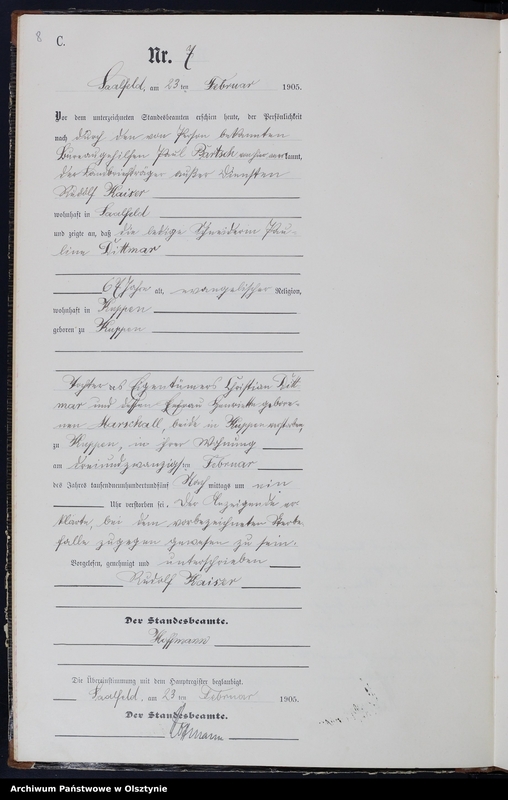 8
C.
Nr. 7
Saalfeld, am 23 ten Februar 1905.
Vor dem unterzeichneten Standesbeamten erschien heute, der Persönlichkeit
nach durch den von Person bekannten
Bureaugehilfen Paul Bartsch anerkannt,
der Landbriefträger außer Diensten
Rudolf Kaiser
wohnhaft in Saalfeld
und zeigte an, daß die ledige Schneiderin Pau-
line Dittmar
67 Jahre alt, evangelischer Religion,
wohnhaft in Kuppen
geboren zu Kuppen
Tochter des Eigentümers Christian Ditt-
mar und dessen Ehefrau Henriette gebore-
nen Marschall, beide in Kuppen verstorben,
zu Kuppen, in ihrer Wohnung
am dreiundzwanzigsten Februar
des Jahres tausendneunhundertundfünf Nachmittags um ein
Uhr verstorben sei. Der Anzeigende er-
klärte, bei dem vorbezeichneten Sterbe-
falle zugegen gewesen zu sein.
Vorgelesen, genehmigt und unterschrieben
Rudolf Kaiser
Der Standesbeamte.
Hoffmann
Die Übereinstimmung mit dem Hauptregister beglaubigt.
Saalfeld, am 23 ten Februar 1905.
Der Standesbeamte.
Archiwum Państwowe w Olsztynie